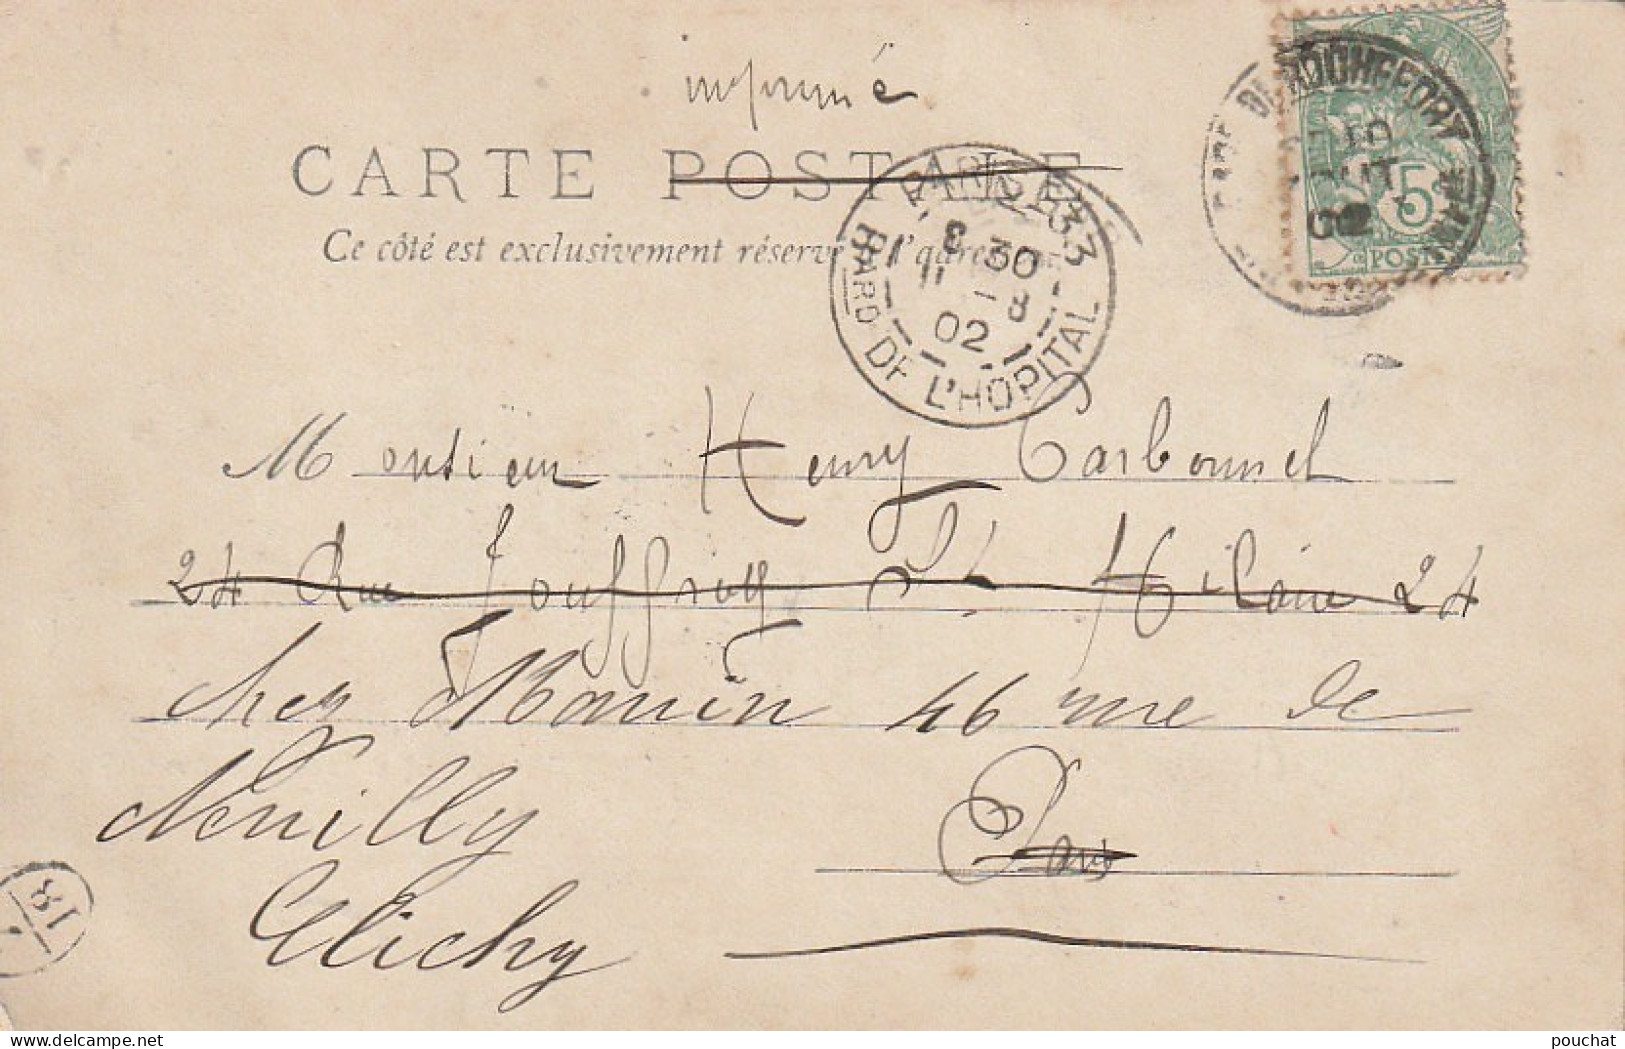 imprimé
CARTE POSTALE
Ce côté est exclusivement réservé à l'adresse
PARIS 33
3 30
11 - 8
02
BARD DE L'HOPITAL
GARE DE ROCHEFORT
10
AOUT
02
5
POSTES
Monsieur Henry Carbonnel
24 Rue Jouffroy St Hilaire 24
chez Manin 46 rue de
Neuilly
Paris
Clichy
18
pouchat